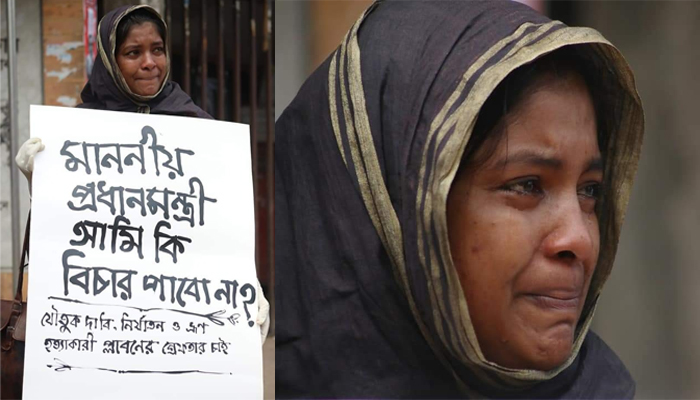 মাননীয়
প্রধানমন্ত্রী
আমি কি
বিচার পাবো না?
যৌতুক দাবি, নির্যাতন ও ভ্রূণ
হত্যাকারী প্লাবনের গ্রেফতার চাই